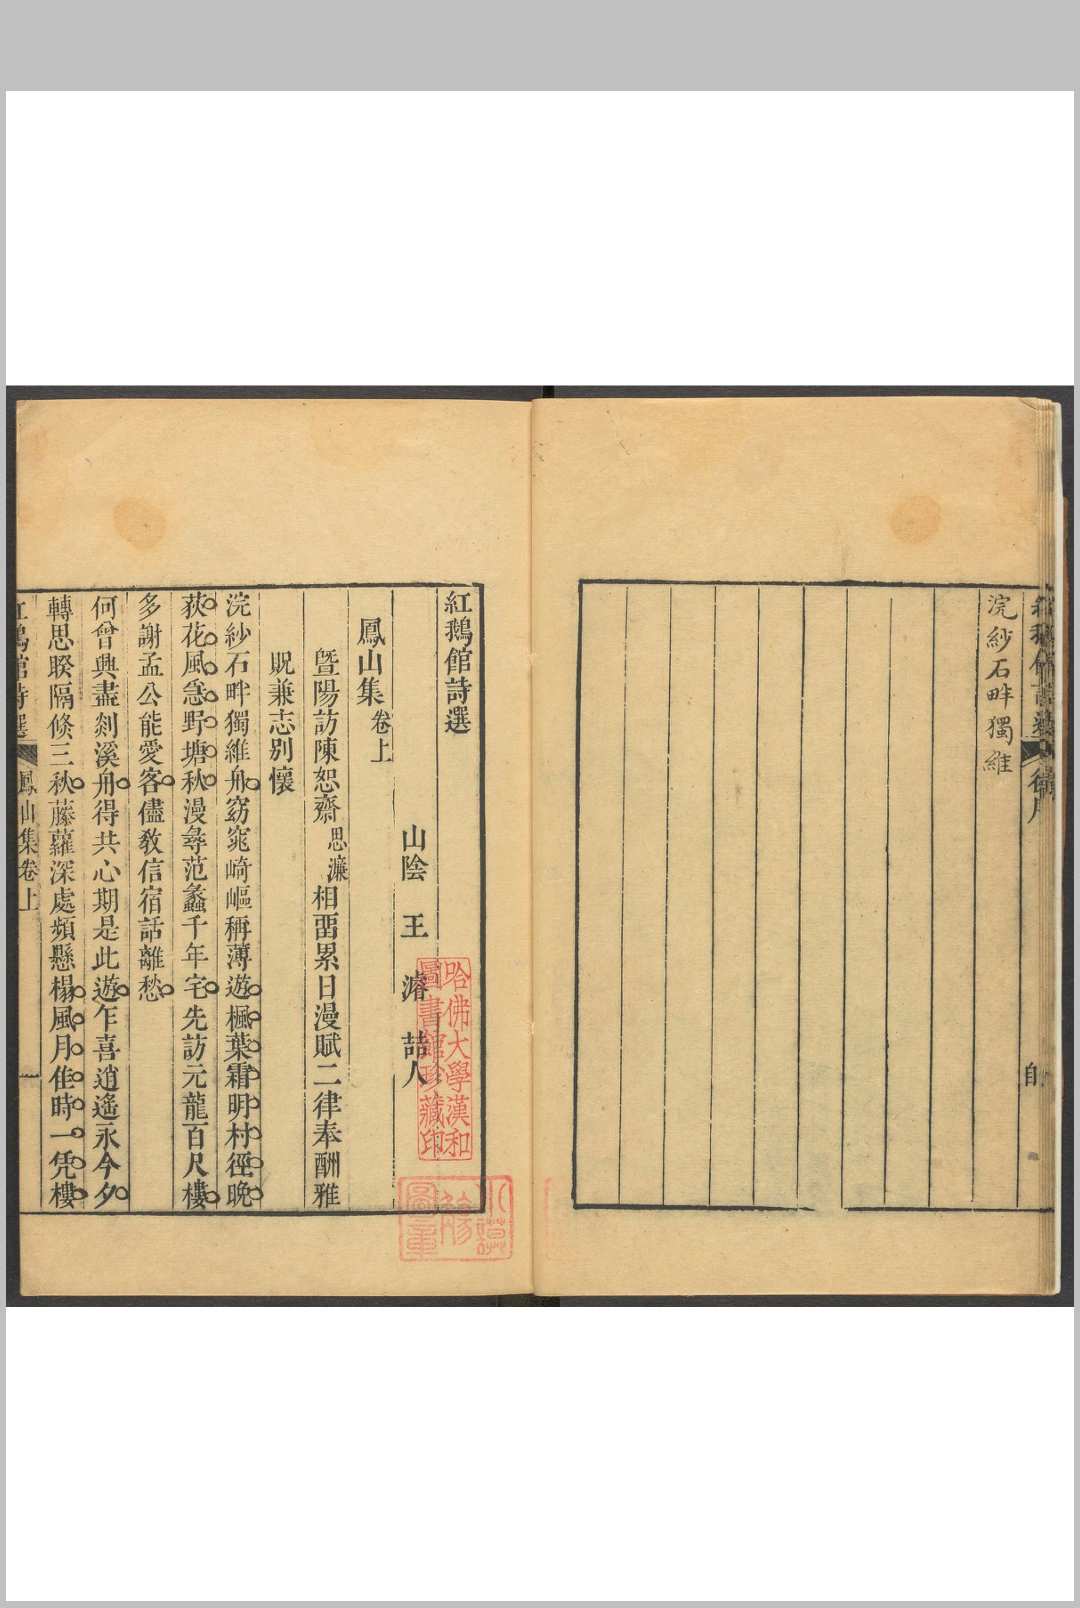 浣紗石畔獨維
紅鵝館詩選
山陰 王 濬 喆人
鳳山集 卷上
暨陽訪陳恕齋 思濂 相畱累日漫賦二律奉酬雅
貺兼志別懷
浣紗石畔獨維舟窈窕崎嶇稱薄遊楓葉霜明村徑晚
荻花風急野塘秋漫尋范蠡千年宅先訪元龍百尺樓
多謝孟公能愛客儘教信宿話離愁
何曾興盡剡溪舟得共心期是此遊乍喜逍遙永今夕
轉思睽隔倏三秋藤蘿深處頻懸榻風月佳時一凭樓
紅鵝館詩選 鳳山集卷上 一
哈佛大學漢和
圖書館珍藏印